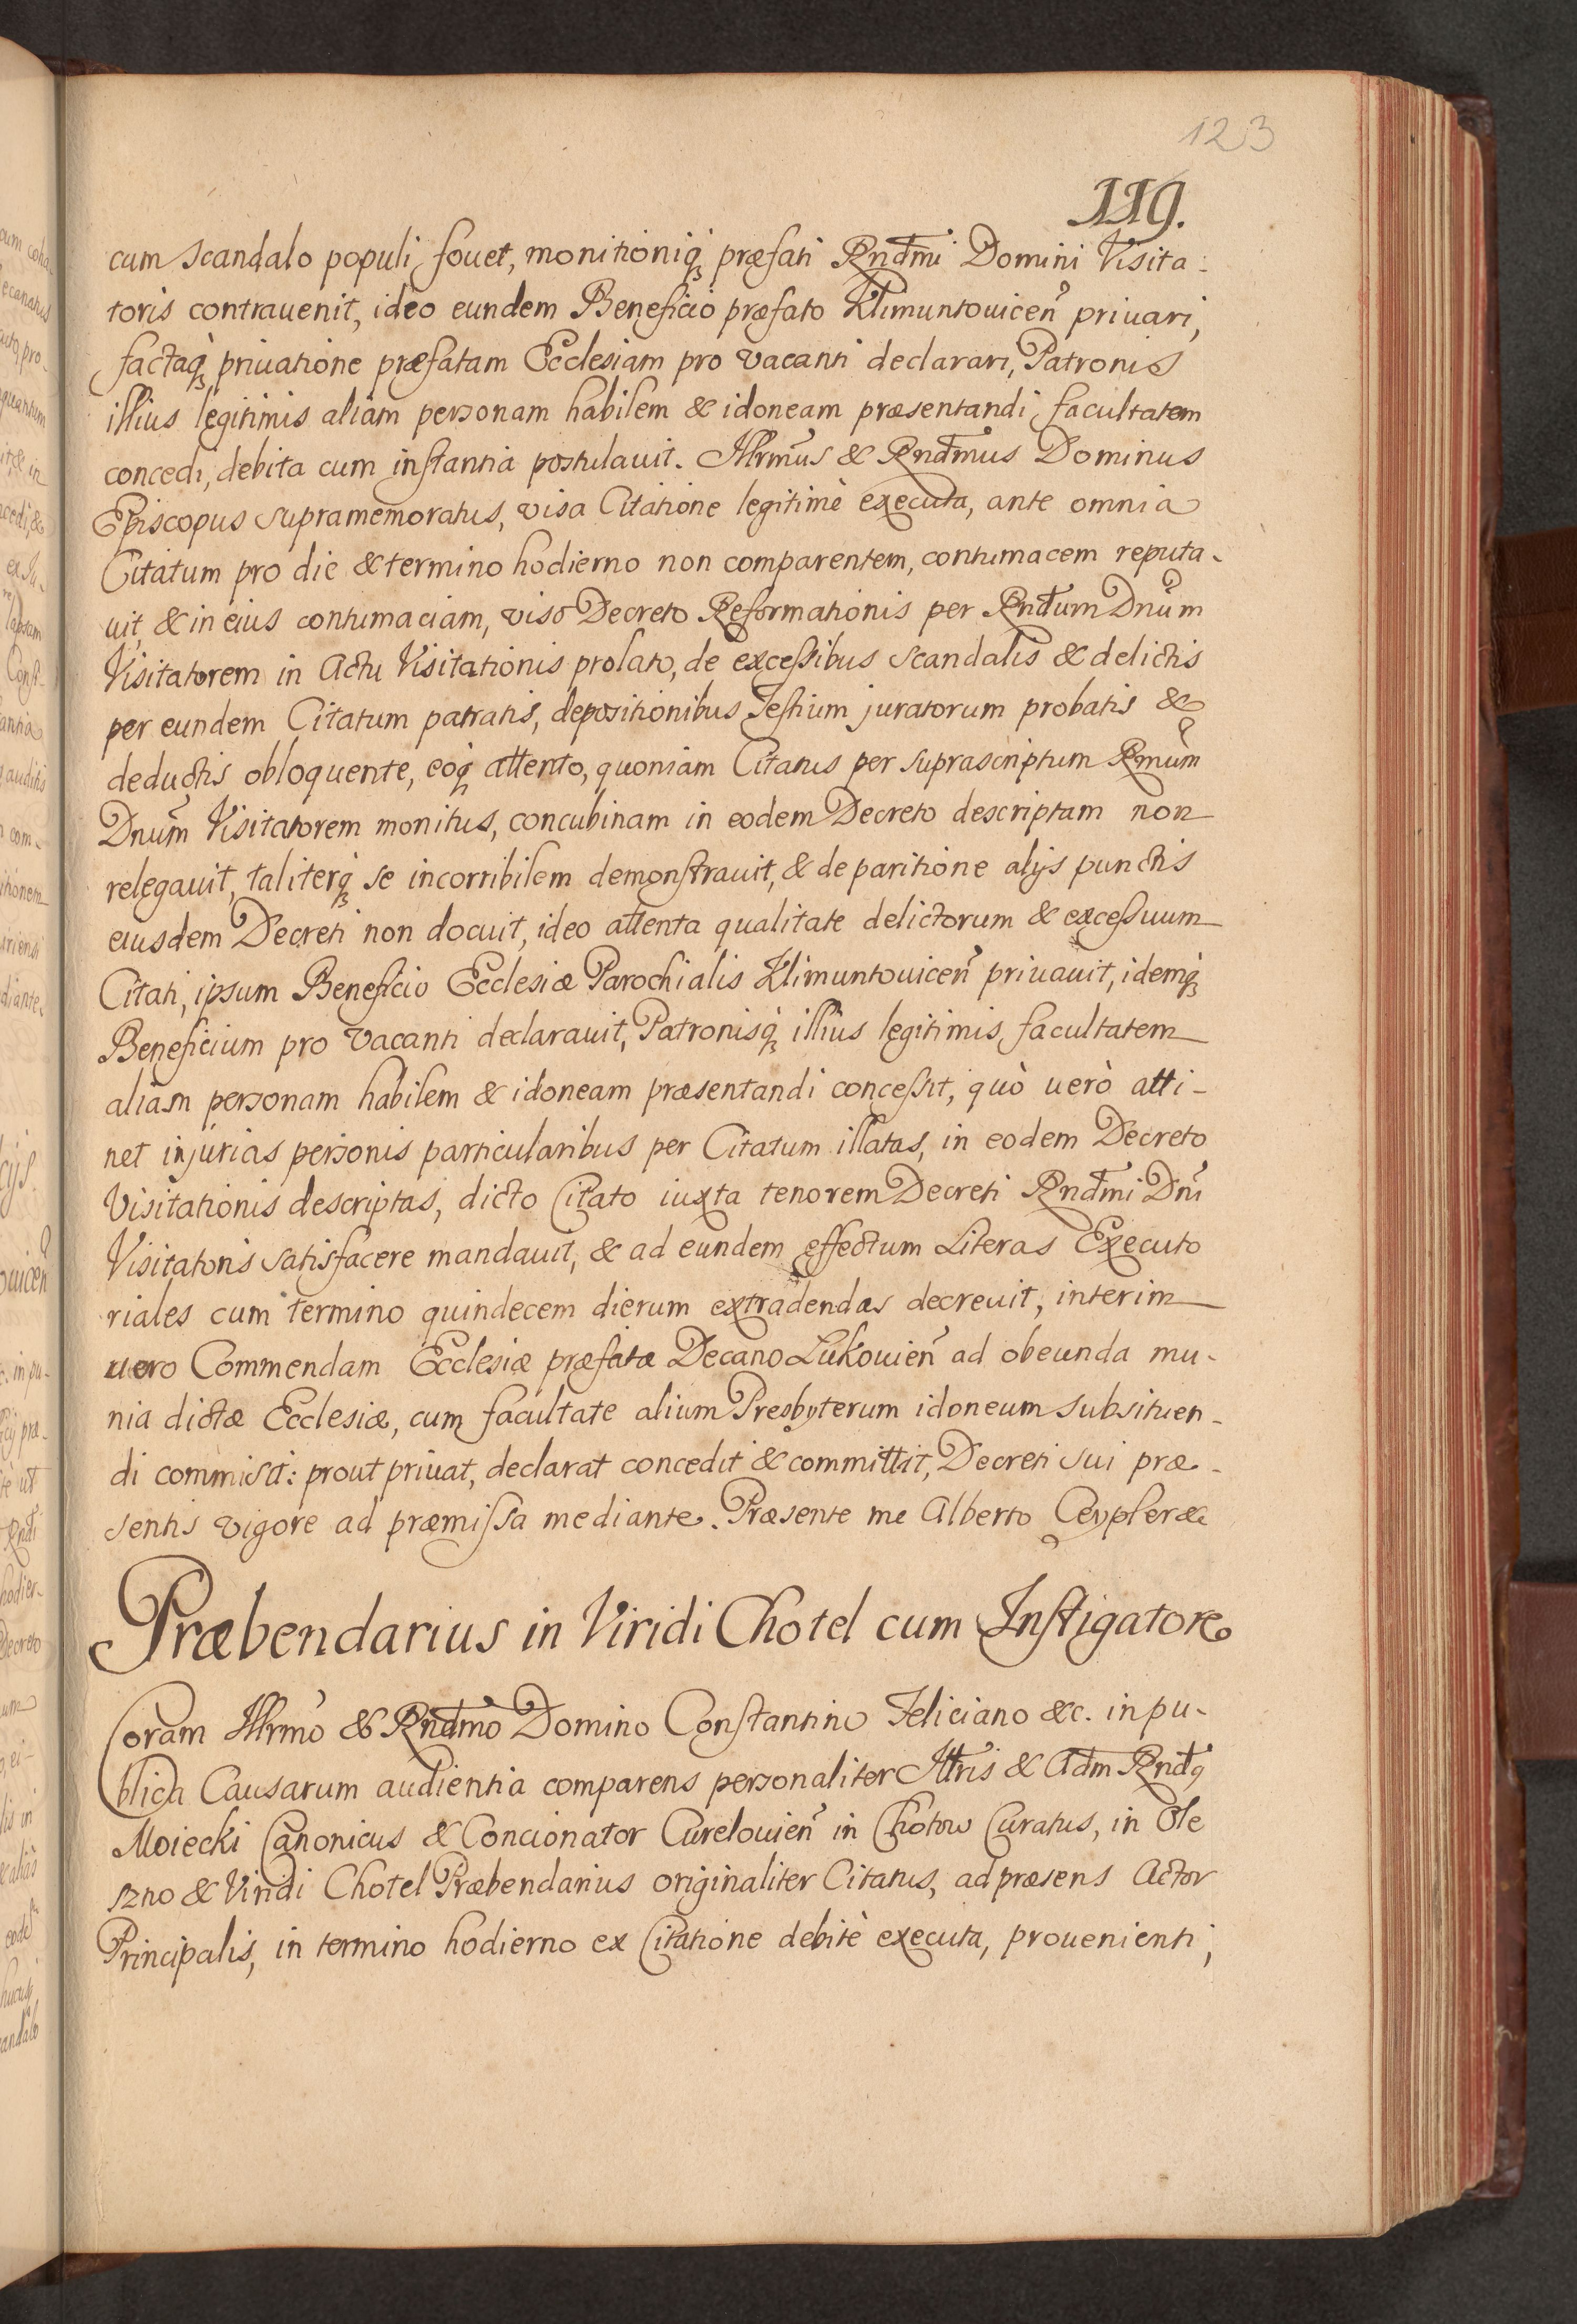 123
119.
cum scandalo populi fouet, monitioniq₃ præfati Rndm̃i Domini Visita:
toris contrauenit, ideo eundem Beneficio præfato Klimuntouiceñ priuari,
factaq₃ priuatione præfatam Ecclesiam pro vacanti declarari, Patronis
illius legitimis aliam personam habilem & idoneam præsentandi facultatem
concedi, debita cum instantia postulauit. Illrm̃us & Rndm̃us Dominus
Episcopus supramemoratus, visa Citatione legitimè executa, ante omnia
Citatum pro die & termino hodierno non comparentem, contumacem reputa-
uit, & in eius contumaciam, viso Decreto Reformationis per Rndum Dnũm
Visitatorem in Actu Visitationis prolato, de excessibus scandalis & delictis
per eundem Citatum patratis, depositionibus Testium juratorum probatis &
deductis obloquente, eoq₃ attento, quoniam Citatus per suprascriptum Rm̃um
Dnũm Visitatorem monitus, concubinam in eodem Decreto descriptam non
relegauit, taliterq₃ se incorribilem demonstrauit, & de paritione alijs punctis
eiusdem Decreti non docuit, ideo attenta qualitate delictorum & excessuum
Citati, ipsum Beneficio Ecclesiæ Parochialis Klimuntouiceñ priuauit, idemq₃
Beneficium pro vacanti declarauit, Patronisq₃ illius legitimis facultatem
aliam personam habilem & idoneam præsentandi concessit, quò uerò atti-
net injurias personis particularibus per Citatum illatas, in eodem Decreto
Visitationis descriptas, dicto Citato iuxta tenorem Decreti Rndm̃i Dnĩ
Visitatoris satisfacere mandauit, & ad eundem effectum Literas Executo
riales cum termino quindecem dierum extradendas decreuit, interim
uero Commendam Ecclesiæ præfatæ Decano Lukouieñ ad obeunda mu-
nia dictæ Ecclesiæ, cum facultate alium Presbyterum idoneum subsituen-
di commisit: prout priuat, declarat concedit & committit, Decreti sui præ-
sentis vigore ad præmissa mediante. Præsente me Alberto Ceypler &c
Præbendarius in Viridi Chotel cum Instigatore
Coram Illrm̃o & Rndm̃o Domino Constantino Feliciano &c. in pu-
blica Causarum audientia comparens personaliter Illris & Adm Rndꝰ
Moiecki Canonicus & Concionator Curelouieñ in Chotow Curatus, in Ole
szno & Viridi Chotel Præbendarius originaliter Citatus, ad præsens Actor
Principalis, in termino hodierno ex Citatione debitè executa, prouenienti,